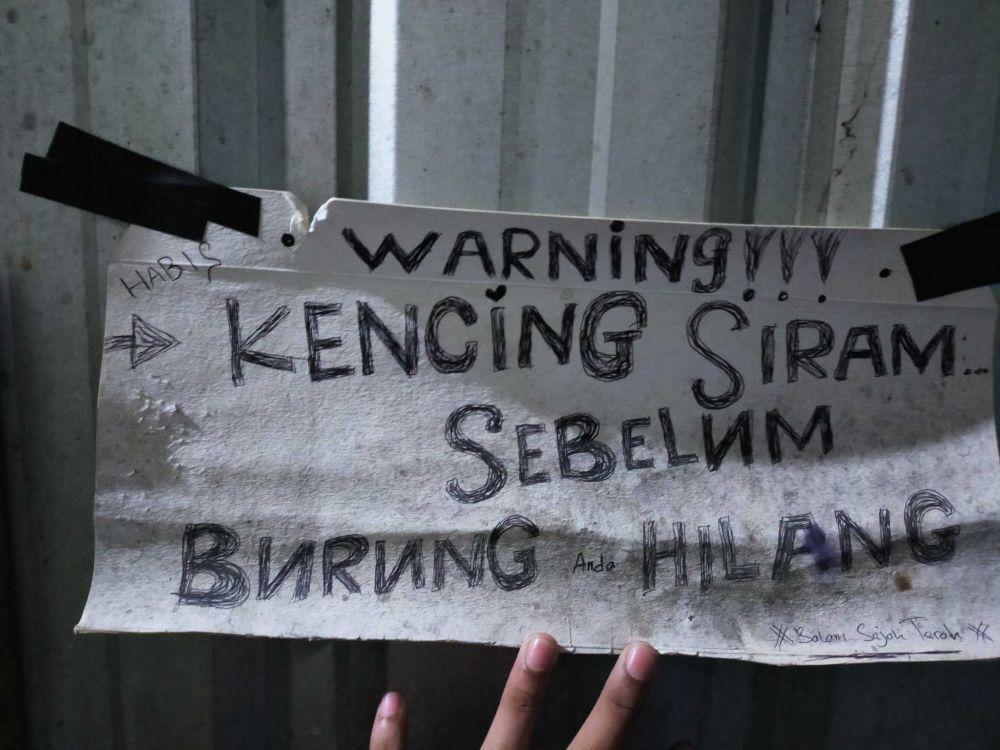 WARNiNg!!!
HABIS
KENCiNG SIRAM...
SEBELUM
BURUNG Anda HILANG
Salam Sejah Terah